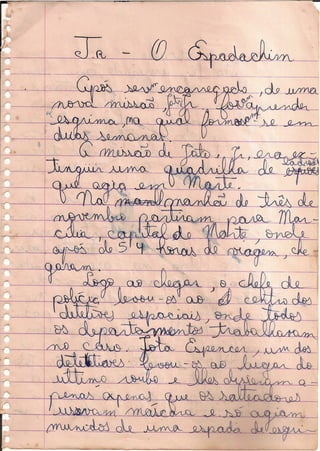 JR - O Espadachim
Após ser encarregado, de uma
nova missão, Jr foi aprender
esgrima, na qual formou-se em
duas semanas.
A missão de Jota, Jr, era ex-
tinguir uma quadrilha de ladrões
que agia em Marte.
Na manhã de três de
novembro partiram para Mar-
cília, capital de Marte, onde
após de 54 horas de viagem, che
garam.
Logo ao chegar, o chefe de
polícia levou-os ao centro dos
detetives espaciais, onde todos
os departamentos trabalhavam
no caso. Jota Espencer, um dos
detetives levou-os ao lugar do
ultimo roubo e lhes disseram a-
penas apenas que os salteadores
usavam máscara e só agiam
munidos de uma espada de esgri-